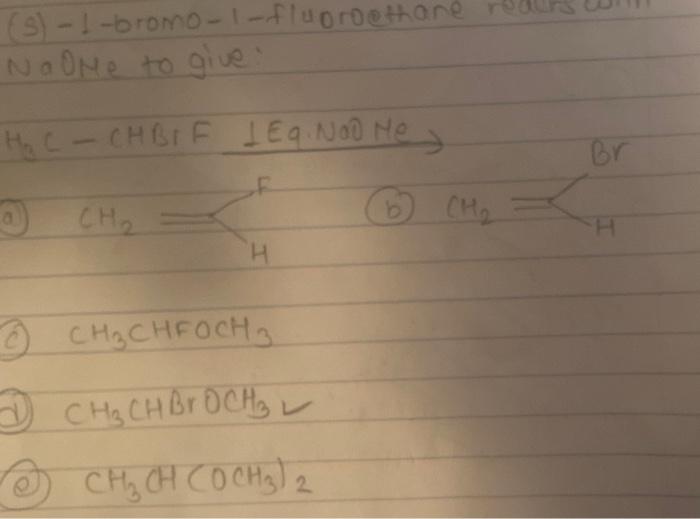 (S)-1-bromo-1-fluoroethane reacts with
NaOMe to give:
H3C - CHBrF 1 Eq. NaOMe
a) CH2 = F H
b) CH2 = Br H
c) CH3CHFOCH3
d) CH3CHBrOCH3 ✓
e) CH3CH(OCH3)2